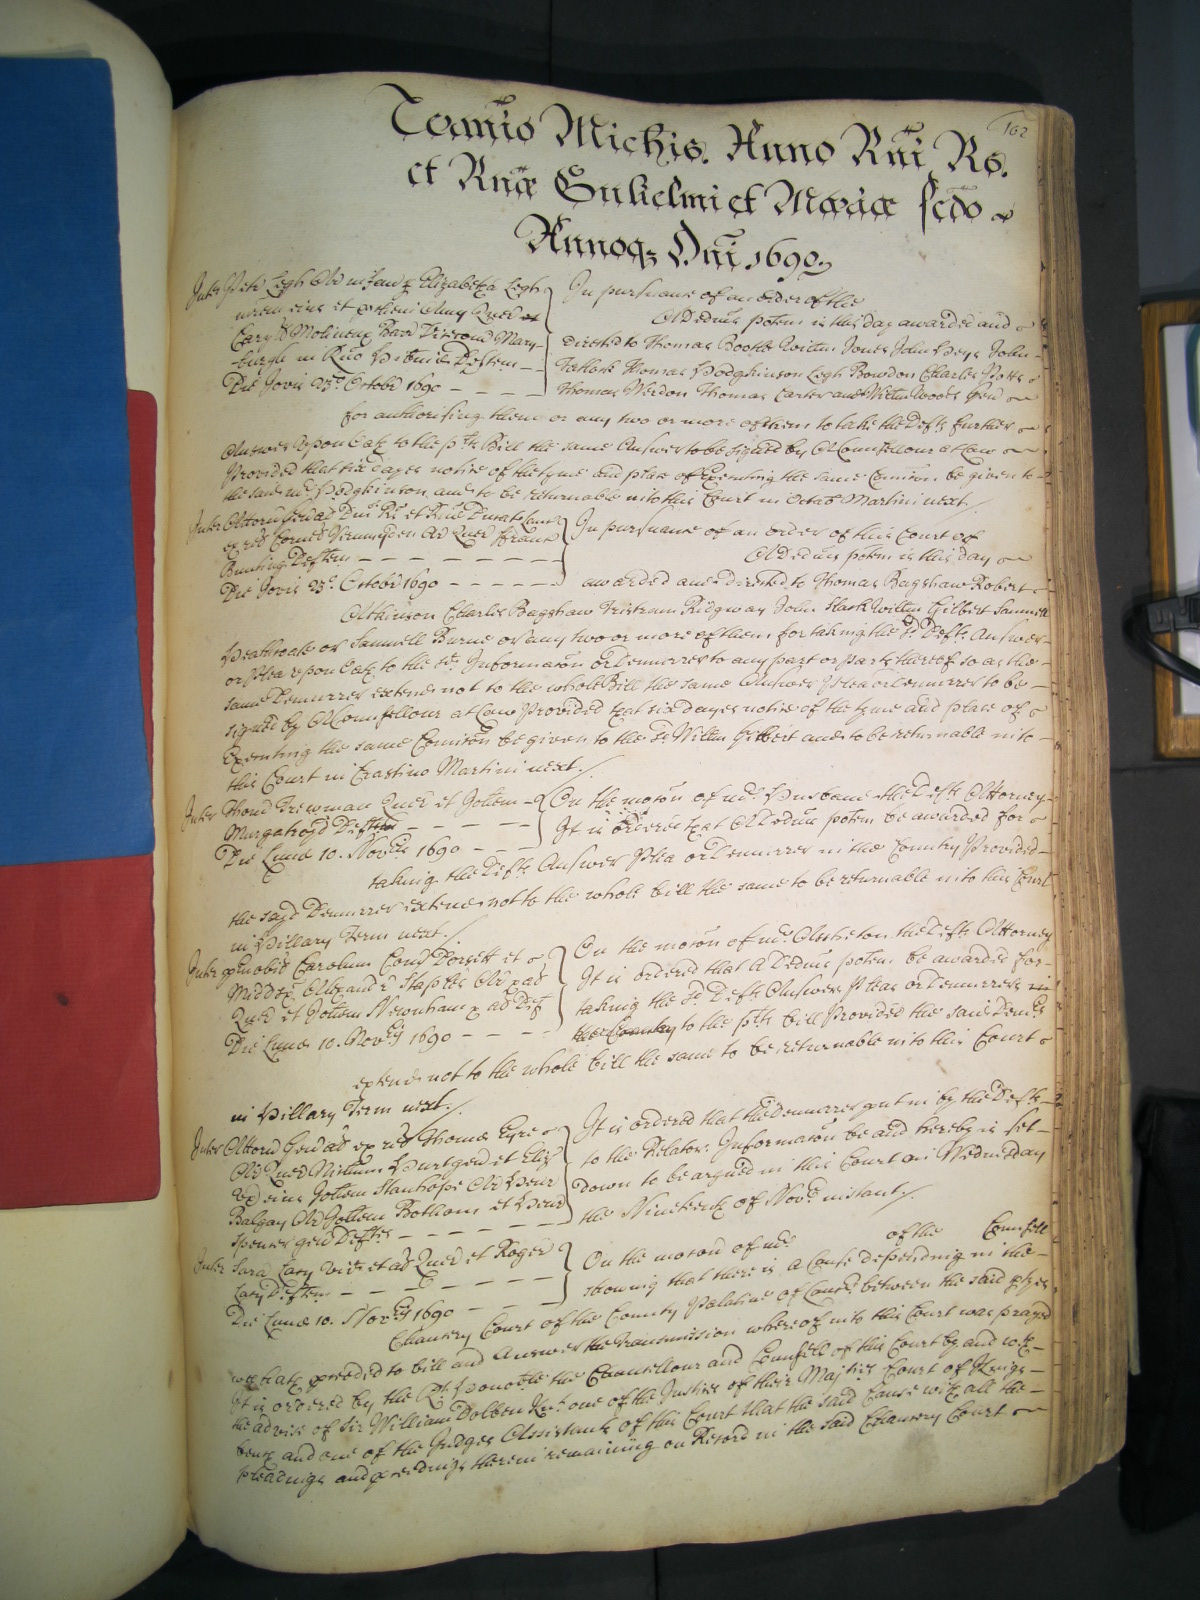 162
Termio Michis. Anno Rni Rs.
et Rnæ Gulielmi et Mariæ scdo
Annoq; Dni 1690.
Inter Petr Legh Ar infan p Elizabetha Legh
et proxim Amic Quer et
Caryll Molineux Barr Vicecom Mary-
-burgh in Rno Hibnie Deftem
Die Jovis 23º. Octobr 1690
In pursuance of an order of the
A Dedim potem is this day awarded and
directed to Thomas Bootle Willm Jones John Heys John
Tatlock Thomas Hodgkinson Legh Bowdon Charles Potts
Thomas Weedon Thomas Carter and Willm Woods Gen
for authorising them or any two or more of them to take the Defts further
Answer upon Oath to the plts Bill the same Answer to be signed by A Counsellour at Law
Provided that six dayes notice of the tyme and place of Executing the same Comission be given to
the said mr. Hodgkinson and to be returnable into this Court in Octab Martini next.
Inter Attorn Gen ad Dni Rs et Rnæ Ducat Lanc
ex rel Corneli Vermuyden Ar Quer Franc
Bunting Deftem
Die Jovis 23º. Octobr 1690
In pursuance of an order of this Court of
A Dedim potem is this day
awarded and directed to Thomas Bagshaw Robert
Atkinson Charles Bagshaw Tristram Ridgway John Slack Willm Gilbert Samuell
Heathcote or Samuell Burne or any two or more of them, for taking the sd. Defts. Answer
or Plea upon Oath to the sd. Informacon or Demurrer to any part or parts thereof so as the
same Demurrer extend not to the whole Bill the same Answer Plea or Demurrer to be
signed by A Counsellour at Law Provided that six dayes notice of the tyme and place of
Executing the same Comicon be given to the sd. Willm Gilbert and to be returnable into
this Court in Crastino Martini next.
Inter Thom Trewman Quer et Jottem
Murgatroyd Deftem
Die Lune 10. Novr. 1690
On the mocon of mr. Husband the Defts. Attorney
It is ordered that A Dedim potem be awarded for
taking the Defts Answer Plea or Demurrer in the Country Provided
the sayd Demurrer extend not to the whole bill the same to be returnable into this Court
in Hillary Term next.
Inter pnobil Carolum Com Dorsett et
Middx Alexandr Staples Ar p ad
Quer et Jottem Newnham p ad Def
Die Lune 10. Novr. 1690
On the mocon of mr. Assheton the Defts Attorney
It is ordered that A Dedim potem be awarded for
taking the sd. Defts Answer Pleas or Demurrers in
the Country to the plts bill Provided the said Demrs.
extend not to the whole bill the same to be returnable into this Court
in Hillary Term next.
Inter Attorn Gen ad ex rel Thome Eyre
Ar Quer Hurt gen et Eliz
Ux eius Jottem Stanhope Ar Henr
Balgay Ar Jottem Bothom et Henr
Spencer gen Deftes
It is ordered that the Demurrer put in by the Defts
to the Relators Informacon be and hereby is set
down to be argued in this Court on Wednesday
the Nineteenth of Novr. instant.
Inter Sara Cary vid et ad Quer et Roger
Cary Deftem
Die Lune 10. Novr. 1690
On the mocon of mr. of the Counsell
showing that there is A Cause depending in the
Chancery Court of the County Palatine of Lancr. between the said ptyes
wch hath proceeded to bill and Answer the transmission whereof into this Court was prayed
It is ordered by the Rt. Honoble the Chancellour and Counsell of this Court by and with
the advice of Sir William Dolben Kt. one of the Justices of their Majties Court of Kings
bench and one of the Judges Assistants of this Court that the said Cause with all the
pleadings and proceedings therein remaining on Record in the said Chancery Court